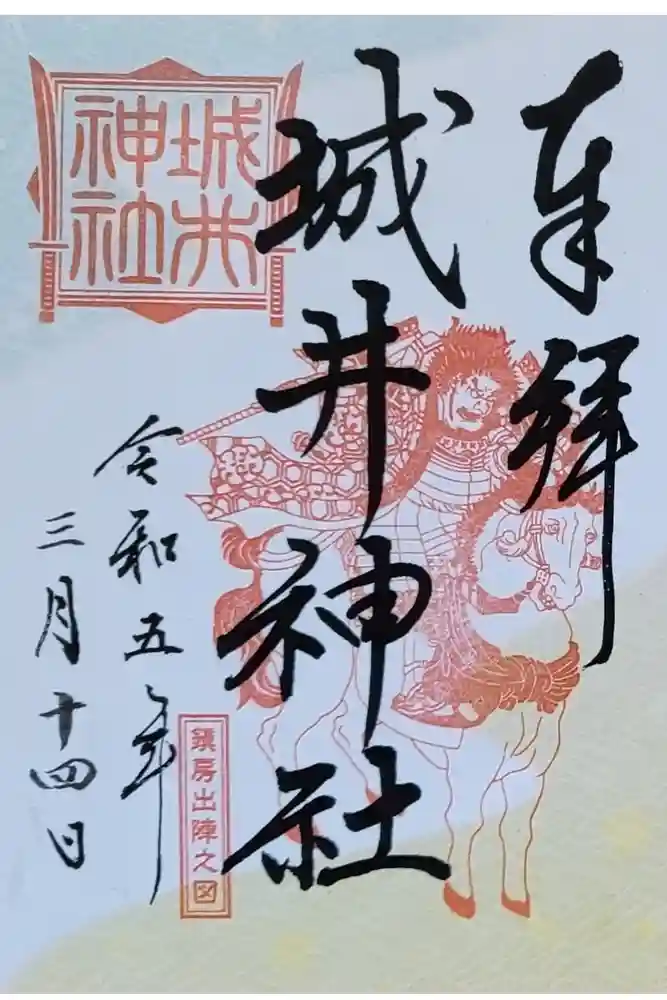 奉拝
城井神社
令和五年
三月十四日
城井
神社
鎮房出陣之図